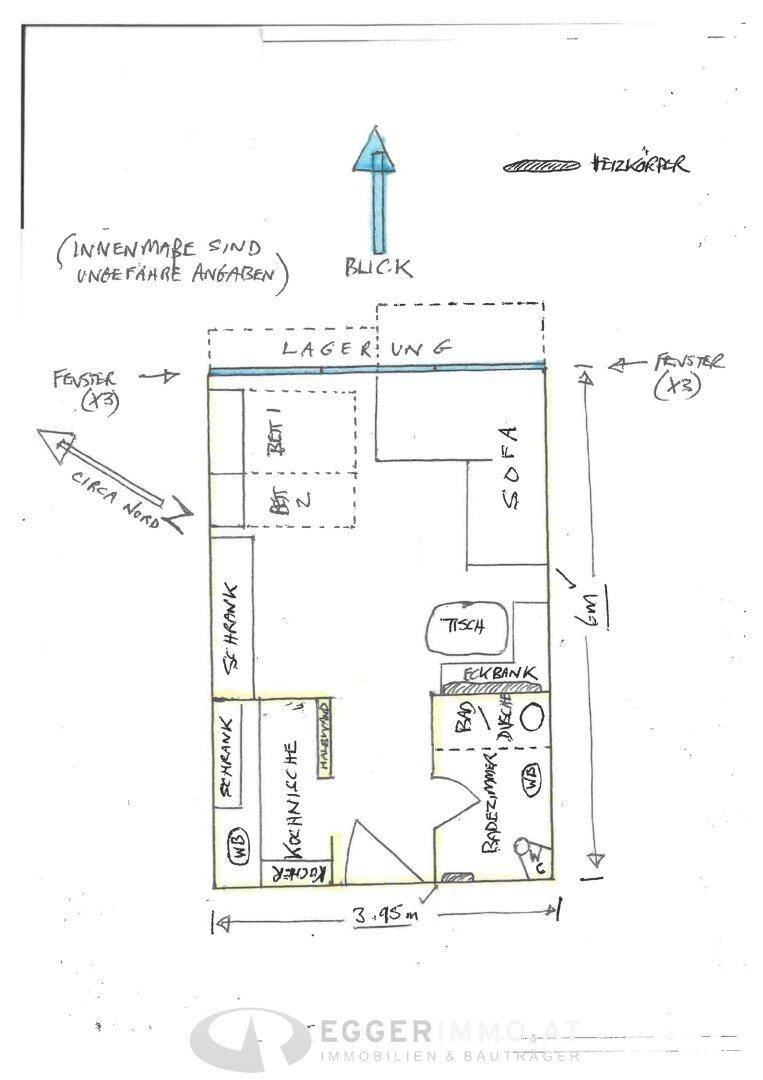 HEIZKÖRPER
(INNENMAßE SIND
UNGEFÄHRE ANGABEN)
BLICK
LAGERUNG
FENSTER
(X3)
FENSTER
(X3)
BETT 1
BETT 2
SOFA
CIRCA NORD
N
SCHRANK
TISCH
6m
ECKBANK
SCHRANK
KOCHNISCHE
HALBWAND
BAD / DUSCHE
BADEZIMMER
WB
WB
KOCHER
WC
3.95m
EGGERIMMO.AT
IMMOBILIEN & BAUTRÄGER